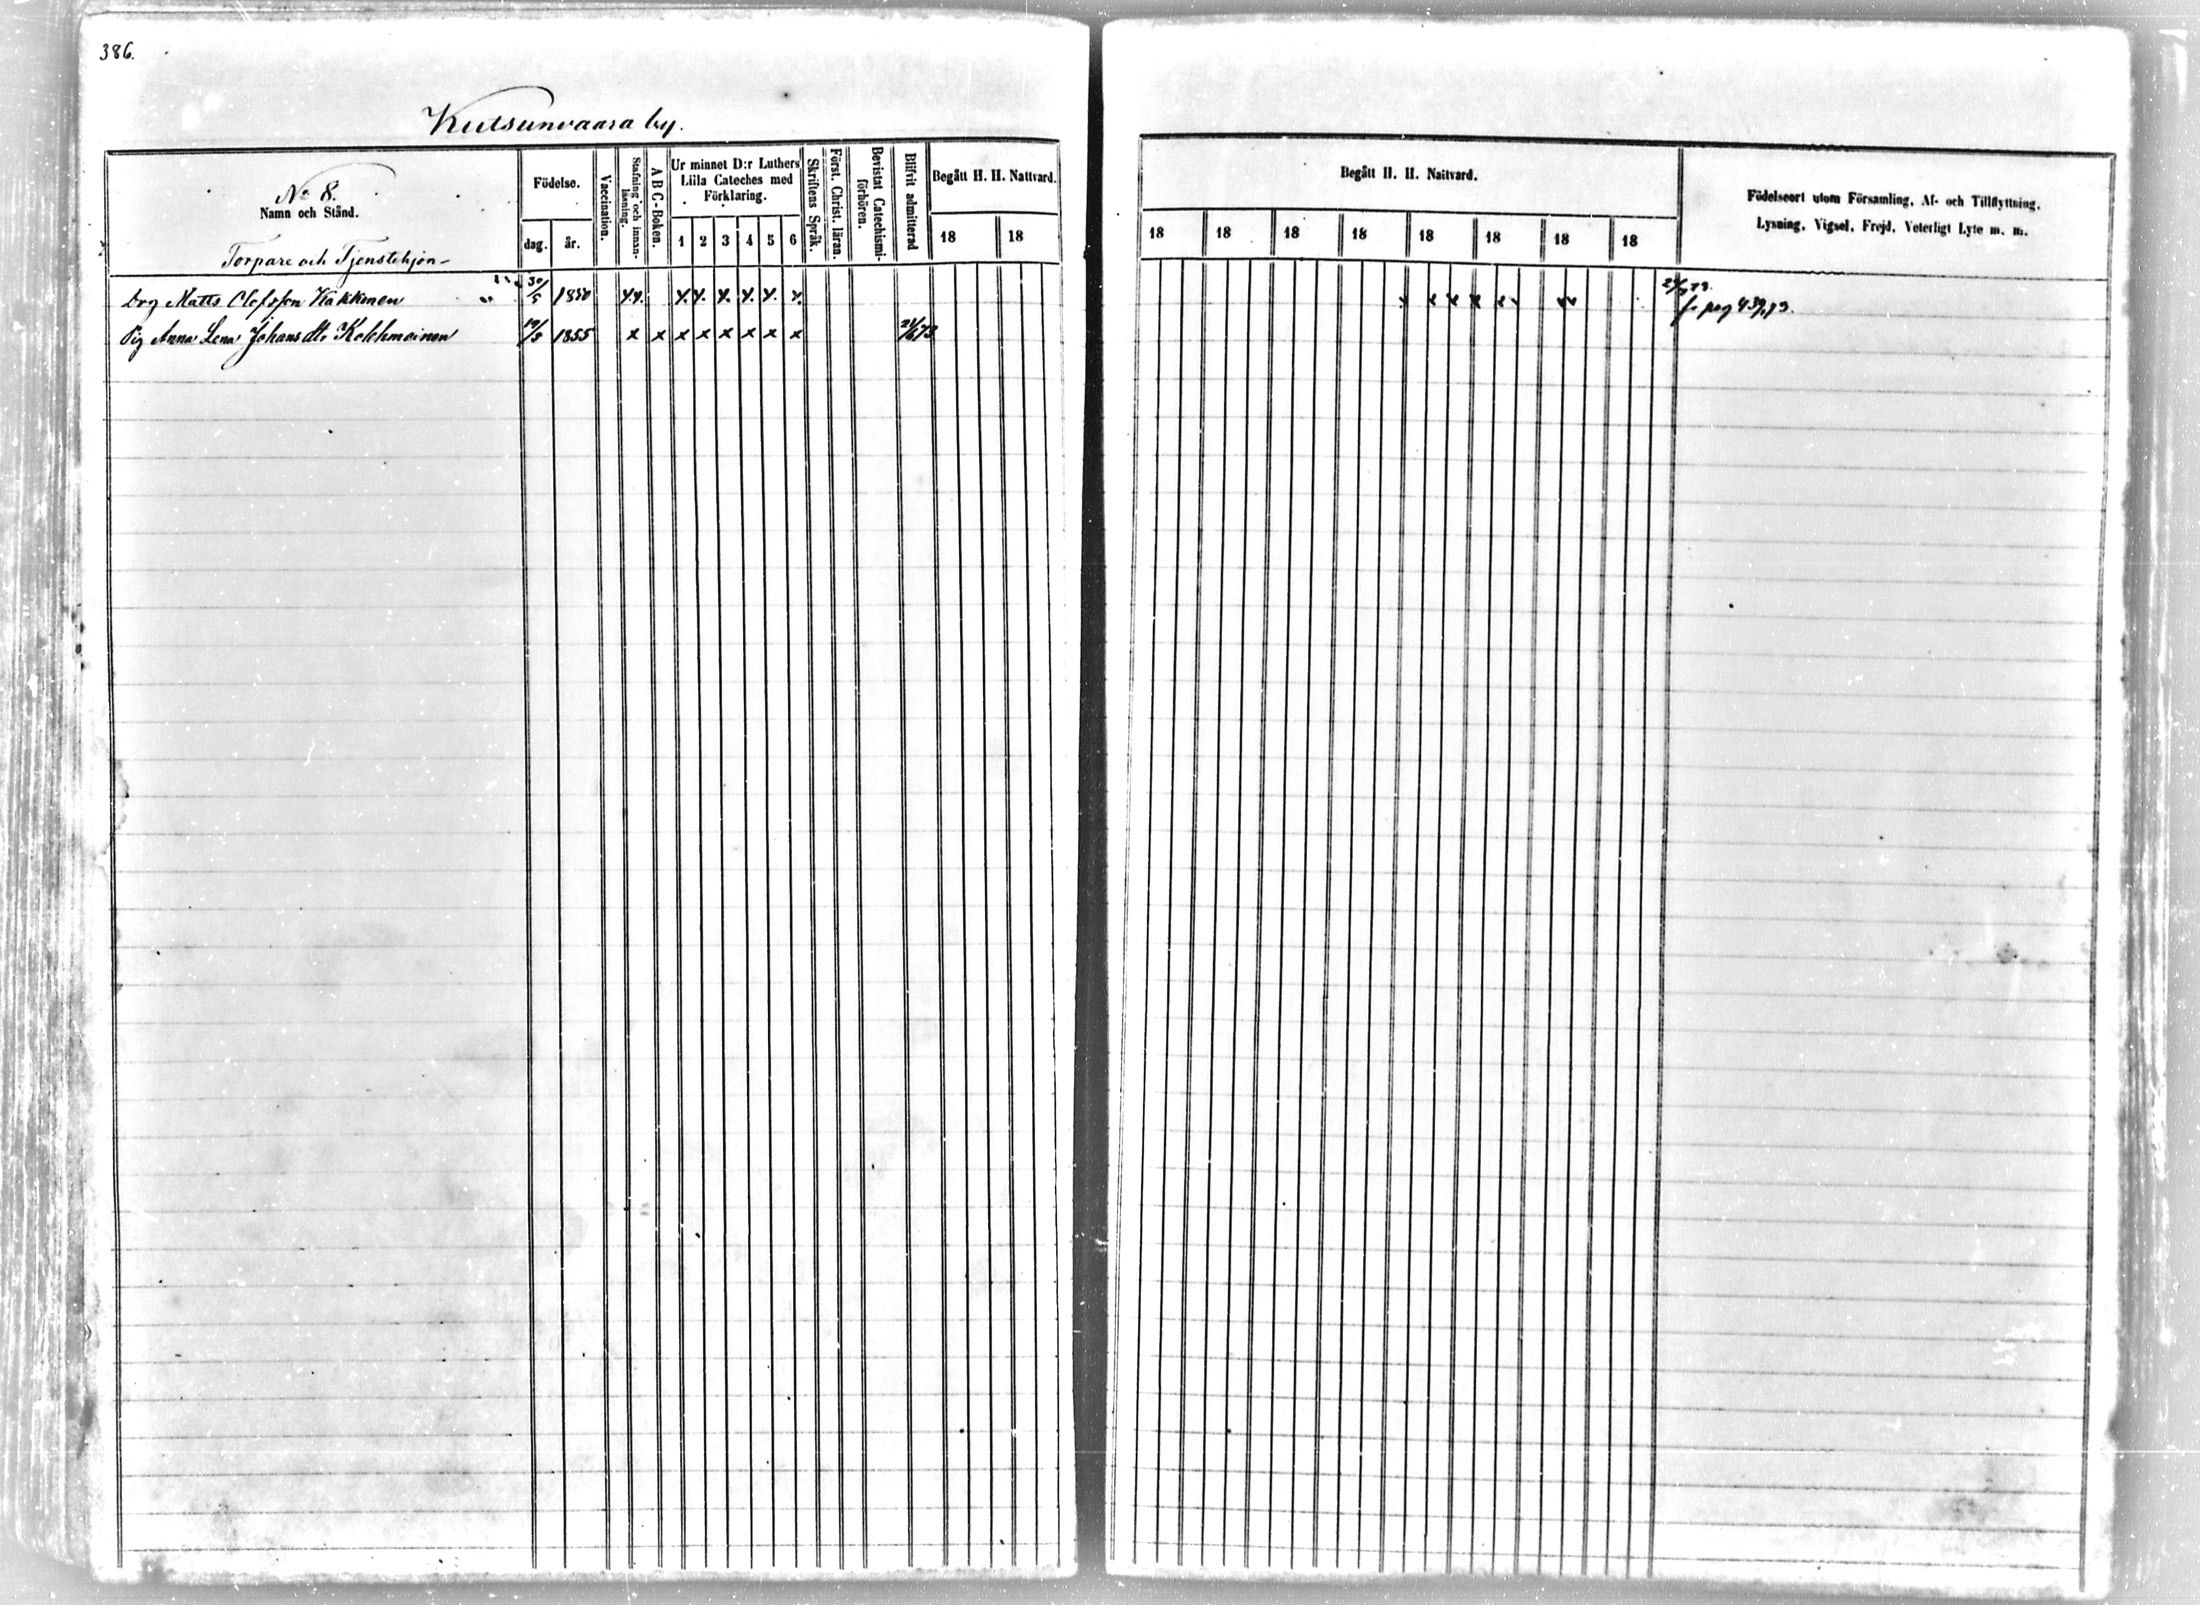 386.
Kutsunvaara by.
No 8.
Namn och Stånd.
Torpare och Tjenstehjon
Födelse.
dag. år.
Vaccination.
Stafning och innan-läsning.
A B C-Boken.
Ur minnet D:r Luthers
Lilla Cateches med
Förklaring.
1 2 3 4 5 6
Skriftens Språk.
Först. Christ. läran.
Bevistat Catechismi-förhören.
Blifvit admitterad
Begått H. H. Nattvard.
18 18
Begått H. H. Nattvard.
18 18 18 18 18 18 18 18
Födelseort utom Församling, Af- och Tillflyttning,
Lysning, Vigsel, Frejd, Veterligt Lyte m. m.
Drg Matts Olofsson Kakkinen 30/5 1850 x x x x x x x x
fr pag 439,73.
Pig Anna Lena Johansdtr Kolehmainen 19/3 1855 x x x x x x x x 21/6 73